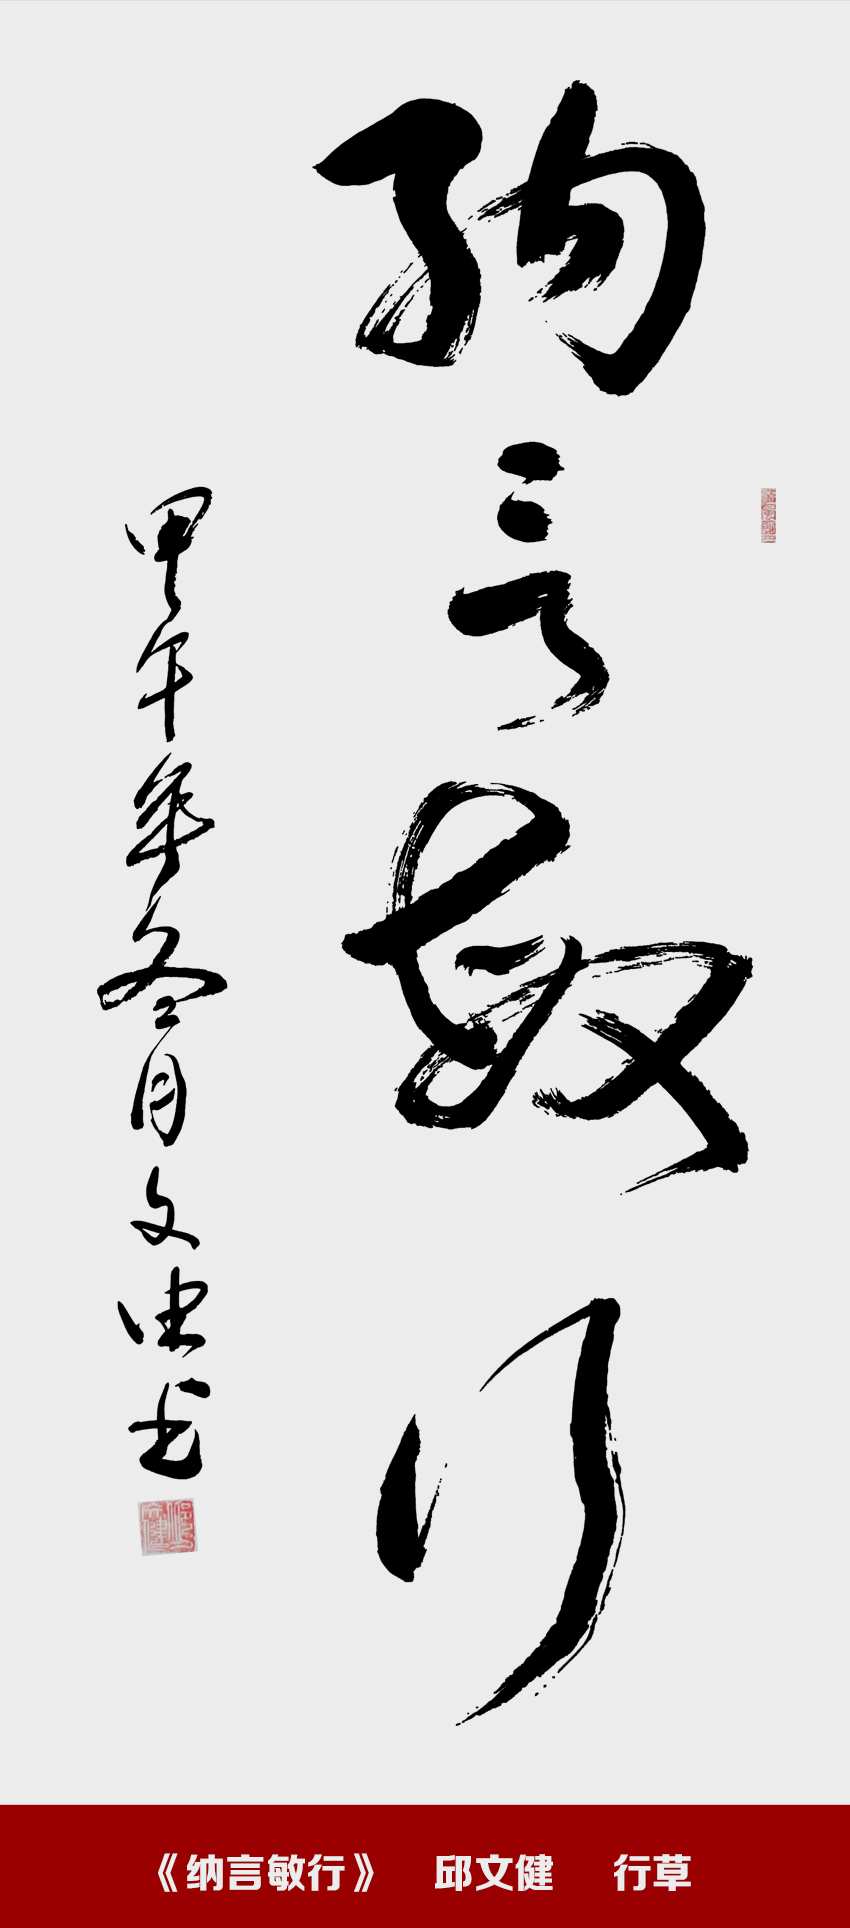 纳言敏行
甲午年冬月文健书
《纳言敏行》 邱文健 行草